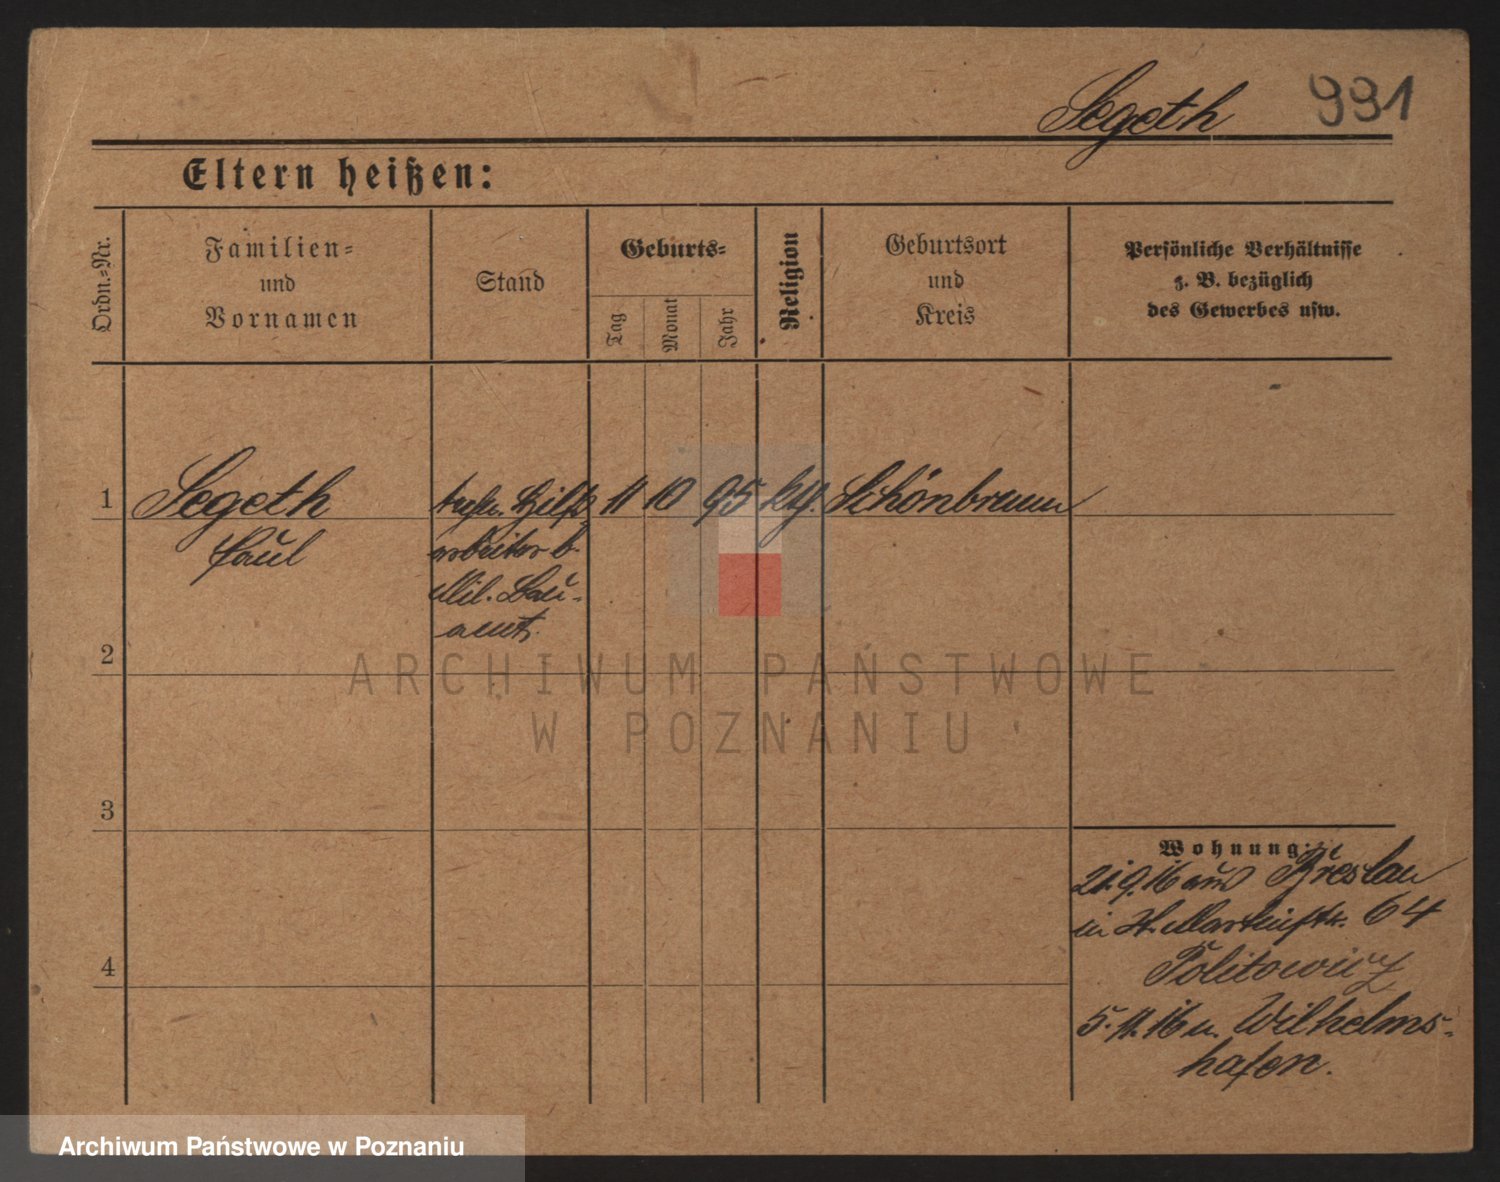 Segeth 991
Eltern heißen:
Ordn.-Nr.
Familien-
und
Vornamen
Stand
Geburts-
Tag
Monat
Jahr
Religion
Geburtsort
und
Kreis
Persönliche Verhältnisse
z. B. bezüglich
des Gewerbes usw.
1 Segeth techn. Hilfs- 11 10 95 kth. Schönbrunn
Paul arbeiter b.
Mil. Bau-
amt.
2
3
4
Wohnung:
21.9.16 aus Breslau
in St. Martinstr. 64
Politowicz
5.11.16 n. Wilhelms-
hafen.
ARCHIWUM PAŃSTWOWE
W POZNANIU
Archiwum Państwowe w Poznaniu